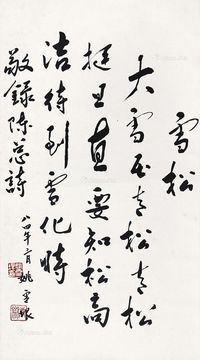 雪松
大雪压青松青松
挺且直要知松高
洁待到雪化时
敬录陈总诗
八四年二月姚雪垠